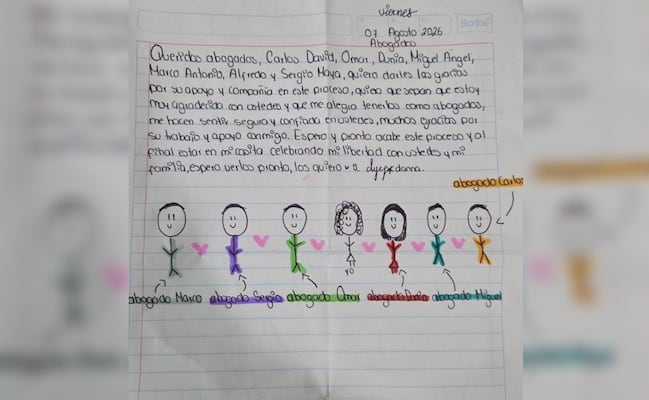 viernes
Scribe
07 Agosto 2026
Abogados
Queridos abogados, Carlos David, Omar, Dunia, Miguel Angel,
Marco Antonio, Alfredo y Sergio Maya, quiero darles las gracias
por su apoyo y compañia en este proceso, quiero que sepan que estoy
muy agradecida con ustedes y que me alegra tenerlos como abogados,
me hacen sentir segura y confiada en ustedes, muchas gracias por
su trabajo y apoyo conmigo. Espero y pronto acabe este proceso y al
final estar en mi casita celebrando mi libertad con ustedes y mi
familia, espero verlos pronto, los quiero
abogado Carlos
yo
abogado Marco abogado Sergio abogado Omar abogada Dunia abogado Miguel